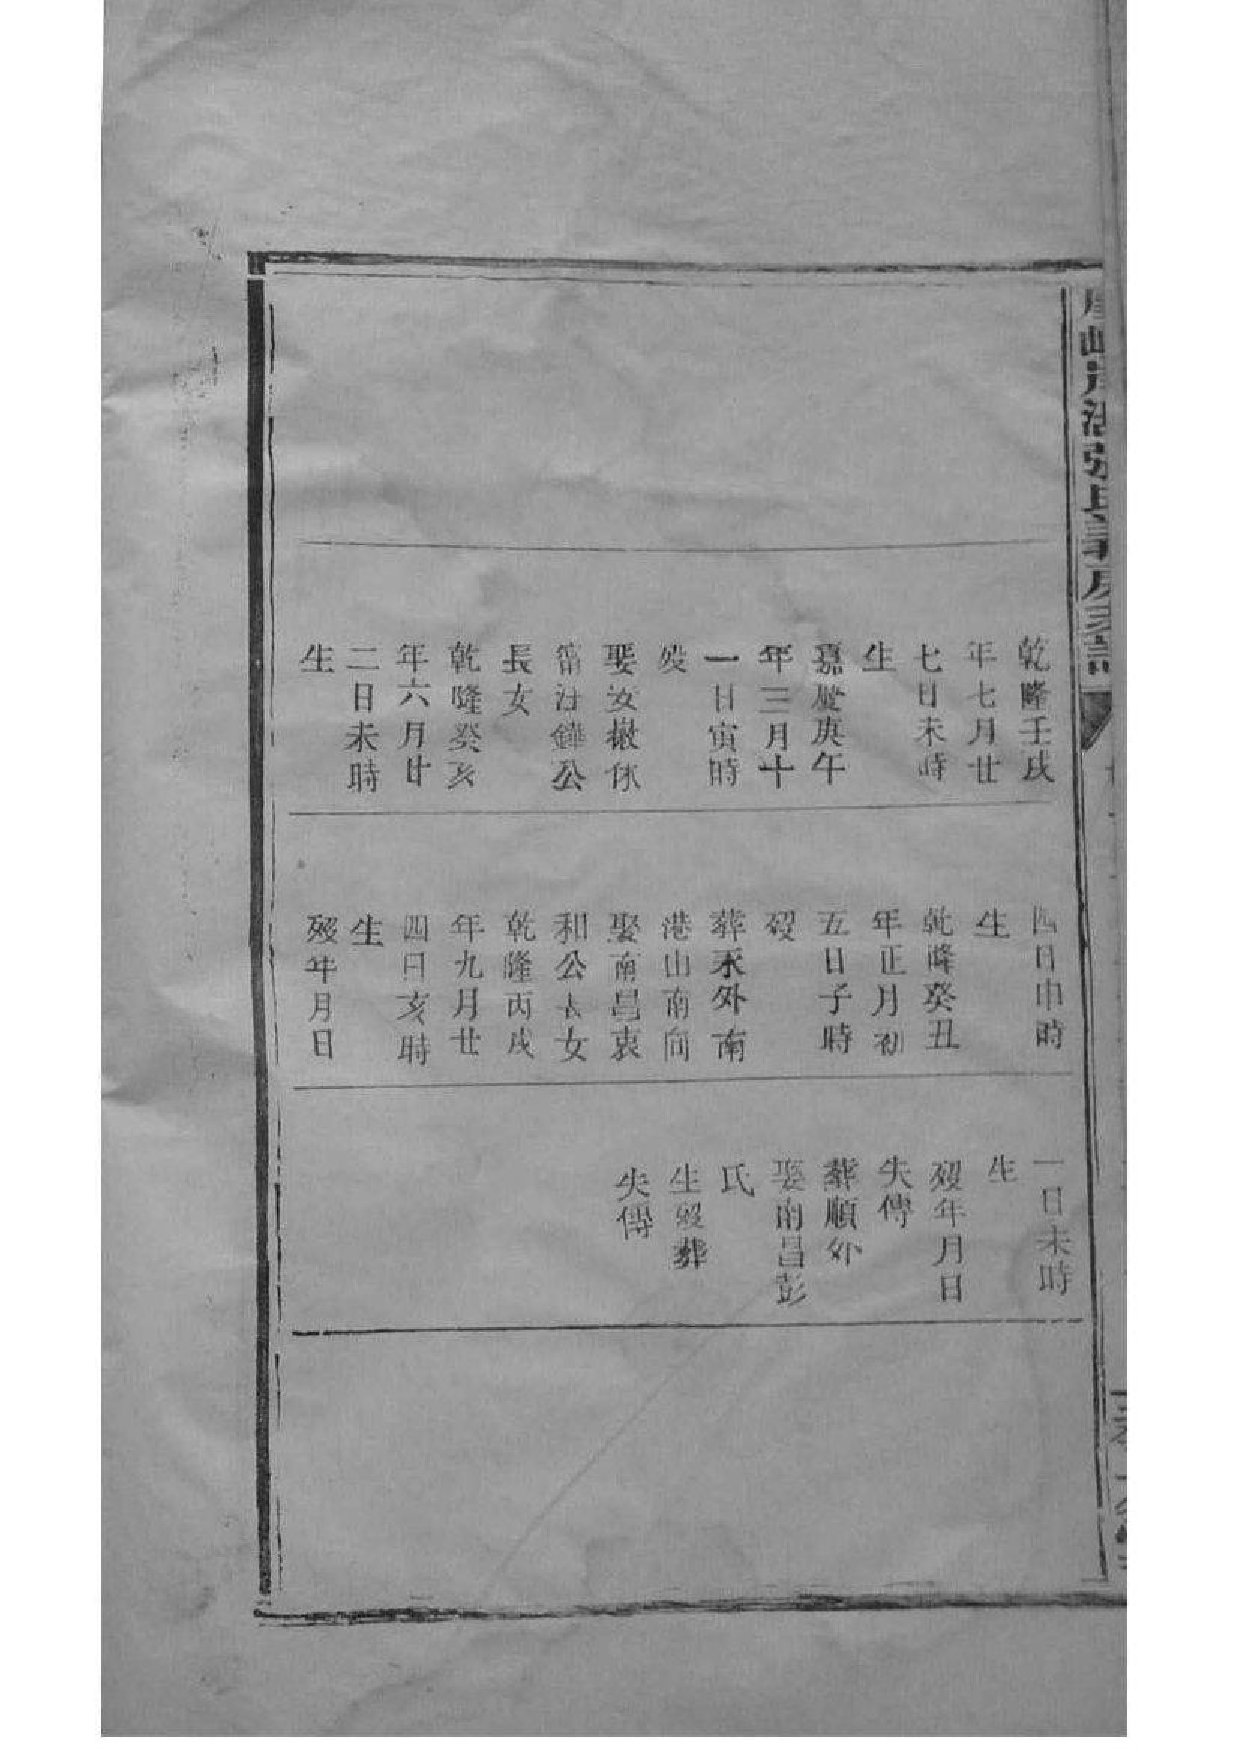 乾隆壬戌
年七月廿
七日未時
生
嘉慶庚午
年三月十
一日寅時
歿
娶汝撤休
富汪鏵公
長女
乾隆癸亥
年六月廿
二日未時
生
四日申時
生
乾隆癸丑
年正月初
五日子時
歿
葬禾外南
港山南向
娶南昌袁
和公長女
乾隆丙戌
年九月廿
四日亥時
生
歿年月日
一日未時
生
歿年月日
失傳
葬順外
娶南昌彭
氏
生歿葬
失傳